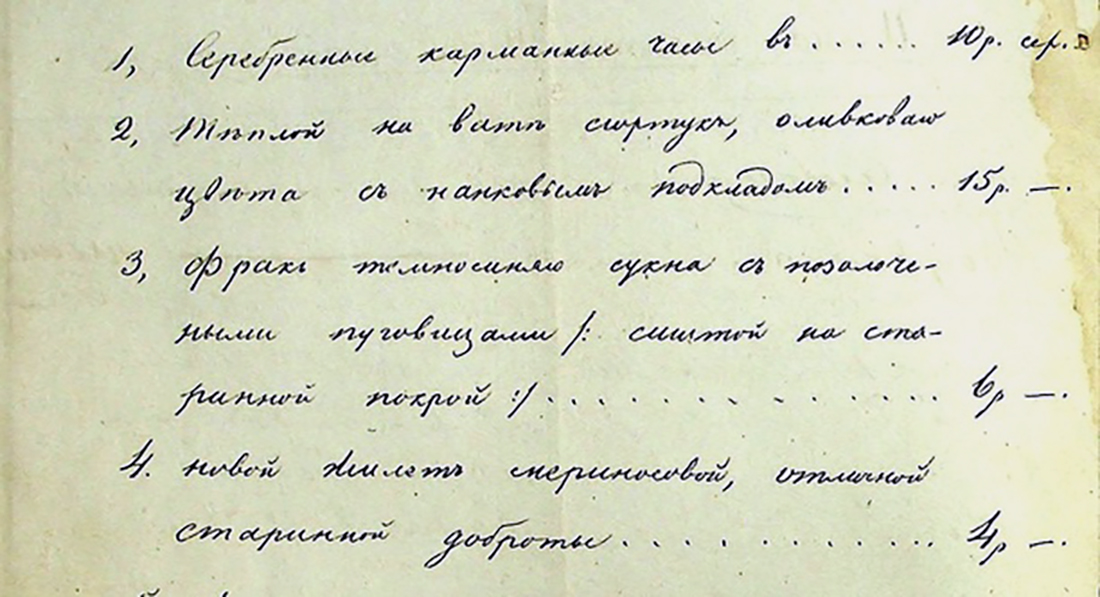 1, Серебренные карманные часы въ ...... 10р. сер.
2, Тѣплой на ватѣ сюртукъ, оливковаго
цвѣта съ нанковымъ подкладомъ ..... 15р. —.
3, Фракъ темносиняго сукна съ позолоче-
ными пуговицами /: сшитой на ста-
ринной покрой :/ .............. 6р —.
4. новой жилетъ мериносовой, отличной
старинной доброты ............ 4р —.